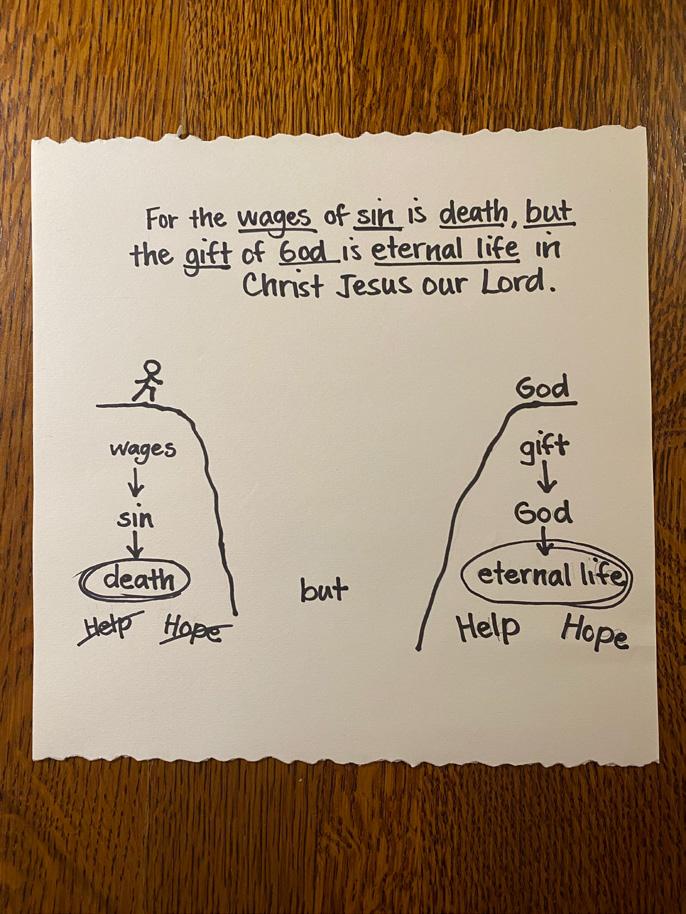 For the wages of sin is death, but
the gift of God is eternal life in
Christ Jesus our Lord.
wages
sin
death
Help Hope
but
God
gift
God
eternal life
Help Hope